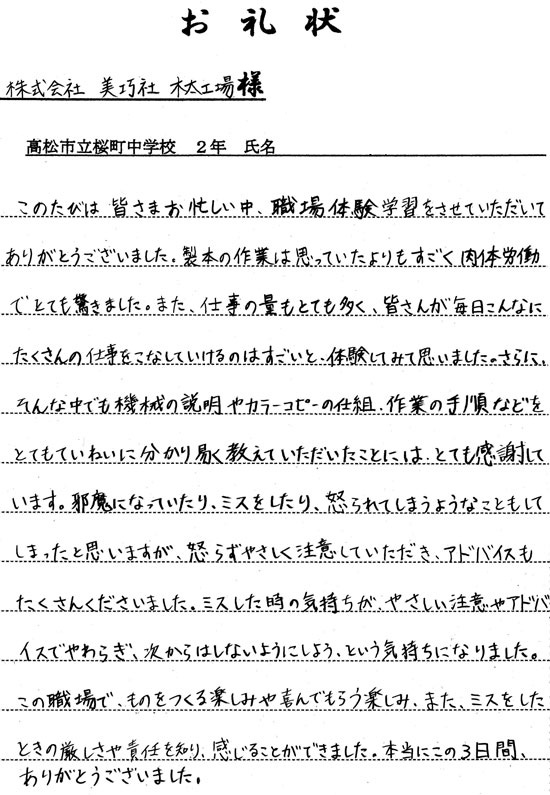 お礼状
株式会社 美巧社 木太工場様
高松市立桜町中学校 2年 氏名
このたびは皆さまお忙しい中、職場体験学習をさせていただいて
ありがとうございました。製本の作業は思っていたよりもすごく肉体労働
でとても驚きました。また、仕事の量もとても多く、皆さんが毎日こんなに
たくさんの仕事をこなしていけるのはすごいと、体験してみて思いました。さらに、
そんな中でも機械の説明やカラーコピーの仕組、作業の手順などを
とてもていねいに分かり易く教えていただいたことには、とても感謝して
います。邪魔になっていたり、ミスをしたり、怒られてしまうようなこともして
しまったと思いますが、怒らずやさしく注意していただき、アドバイスも
たくさんくださいました。ミスした時の気持ちが、やさしい注意やアドバ
イスでやわらぎ、次からはしないようにしよう、という気持ちになりました。
この職場で、ものをつくる楽しみや喜んでもらう楽しみ、また、ミスをした
ときの厳しさや責任を知り、感じることができました。本当にこの3日間、
ありがとうございました。